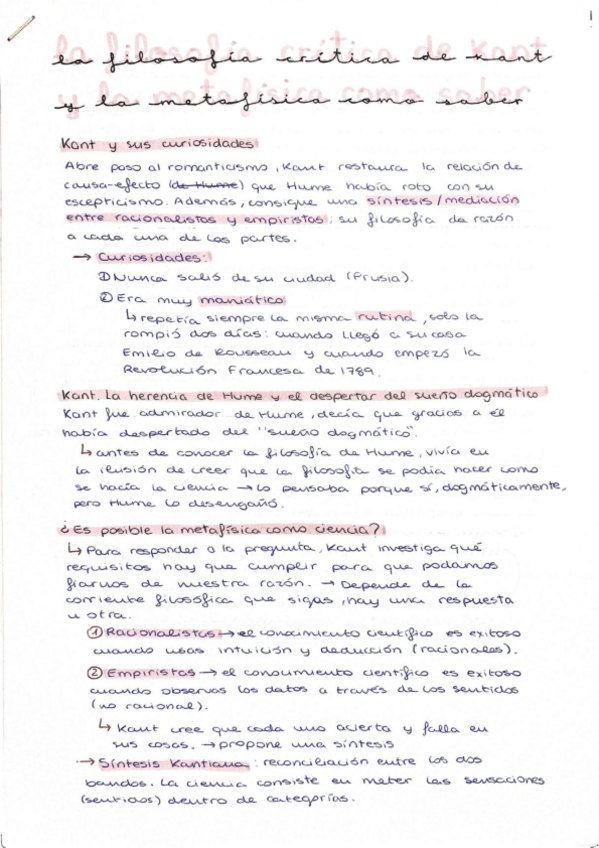 la filosofía crítica de Kant
y la metafísica como saber
Kant y sus curiosidades
Abre paso al romanticismo, Kant restaura la relación de
causa-efecto (de Hume) que Hume había roto con su
escepticismo. Además, consigue una síntesis/mediación
entre racionalistas y empiristas; su filosofía da razón
a cada una de las partes.
→ Curiosidades:
① Nunca salió de su ciudad (Prusia).
② Era muy maniático
↳ repetía siempre la misma rutina, solo la
rompió dos días: cuando llegó a su casa
Emilio de Rousseau y cuando empezó la
Revolución Francesa de 1789.
Kant. La herencia de Hume y el despertar del sueño dogmático
Kant fue admirador de Hume, decía que gracias a él
había despertado del "sueño dogmático".
↳ antes de conocer la filosofía de Hume, vivía en
la ilusión de creer que la filosofía se podía hacer como
se hacía la ciencia → lo pensaba porque sí, dogmáticamente,
pero Hume lo desengañó.
¿Es posible la metafísica como ciencia?
↳ Para responder a la pregunta, Kant investiga qué
requisitos hay que cumplir para que podamos
fiarnos de nuestra razón. → Depende de la
corriente filosófica que sigas, hay una respuesta
u otra.
① Racionalistas → el conocimiento científico es exitoso
cuando usas intuición y deducción (racionales).
② Empiristas → el conocimiento científico es exitoso
cuando observas los datos a través de los sentidos
(no racional).
↳ Kant cree que cada uno acierta y falla en
sus cosas. → propone una síntesis
→ Síntesis Kantiana: reconciliación entre los dos
bandos. La ciencia consiste en meter las sensaciones
(sentidos) dentro de categorías.